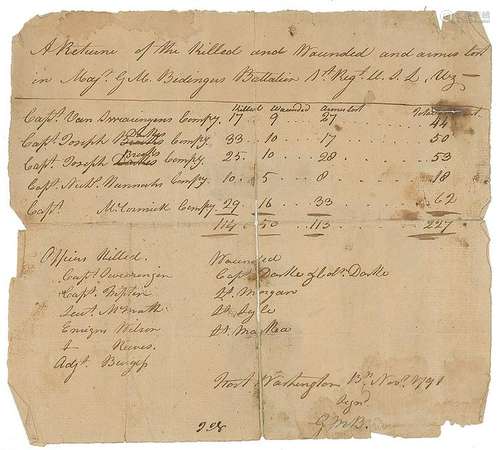 A Return of the Killed and Wounded and arms lost
in Maj. G. M. Bedingers Battalion 1st Regt. U. S. L. Viz—
Killed Wounded Arms lost Total
Capt. Van Swearingens Compy 17 9 27 44
Capt. Joseph Darks Compy 33 10 17 50
Capt. Joseph Brocks Compy 25 10 28 53
Capt. Nichs. Hannahs Compy 10 5 8 18
Capt. McCormick Compy 29 16 33 62
114 50 113 227
Officers Killed. Wounded
Capt. Swearengen Capt. Darke of Col. Darke
Capt. Tipton Lt. Morgan
Lieut. McMath Lt. Lyle
Ensign Wilson Lt. McRea
Reeves.
Adjt. Burgess
Fort Washington 13th Novr. 1791
Signd.
G M B.